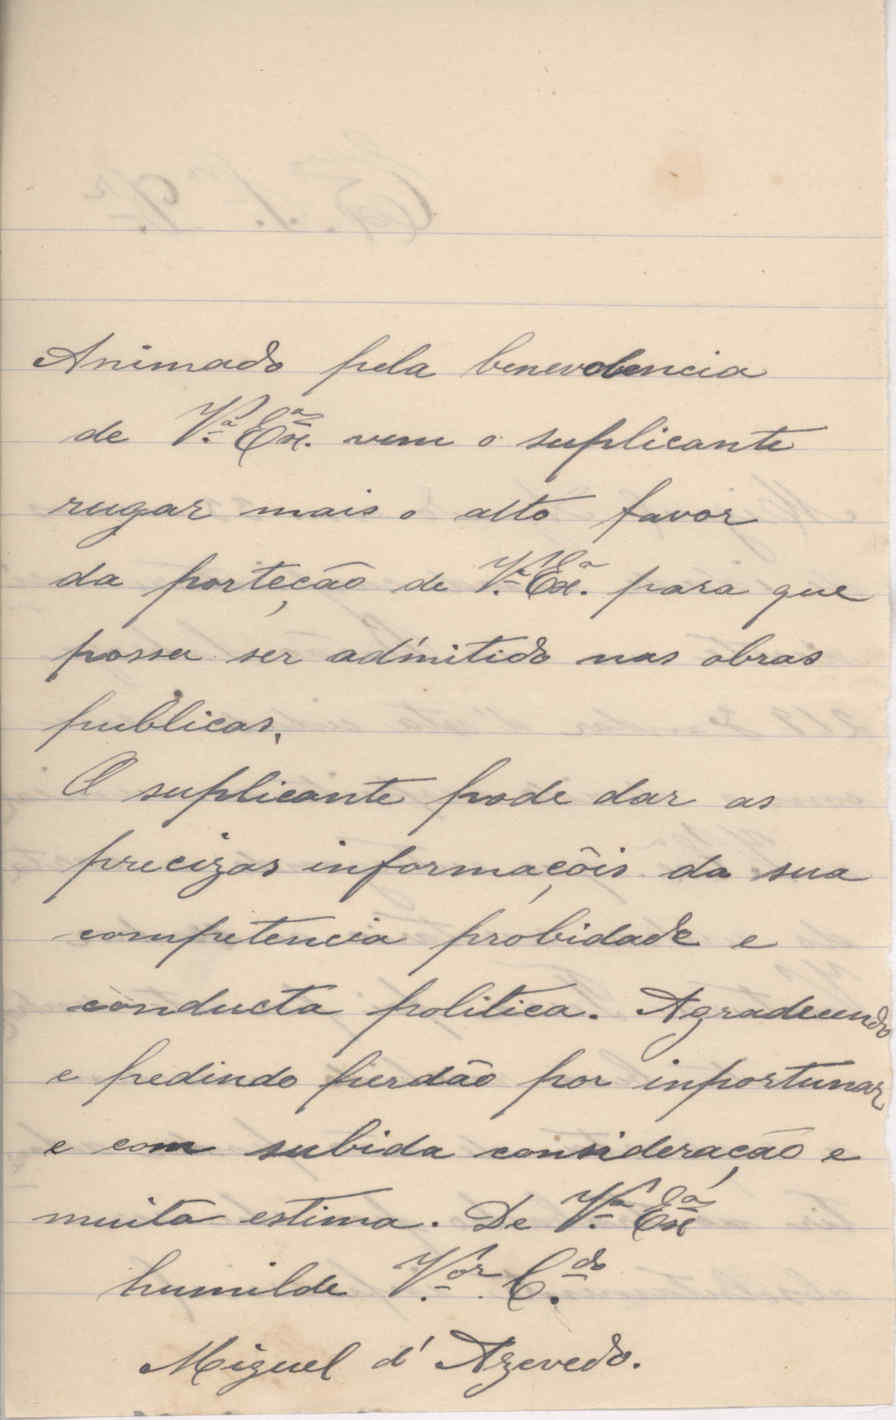 Animado pela benevolencia
de V.ª Exª. vem o suplicante
rugar mais o alto favor
da porteção de V.ª Exª. para que
possa ser admitido nas obras
publicas.
O suplicante pode dar as
precizas informaçõis da sua
competencia probidade e
conducta politica. Agradecendo
e pedindo perdão por inportunar
e com subida consideração e
muita estima. De V.ª Exª
humilde V.or C.do
Miguel d'Azevedo.